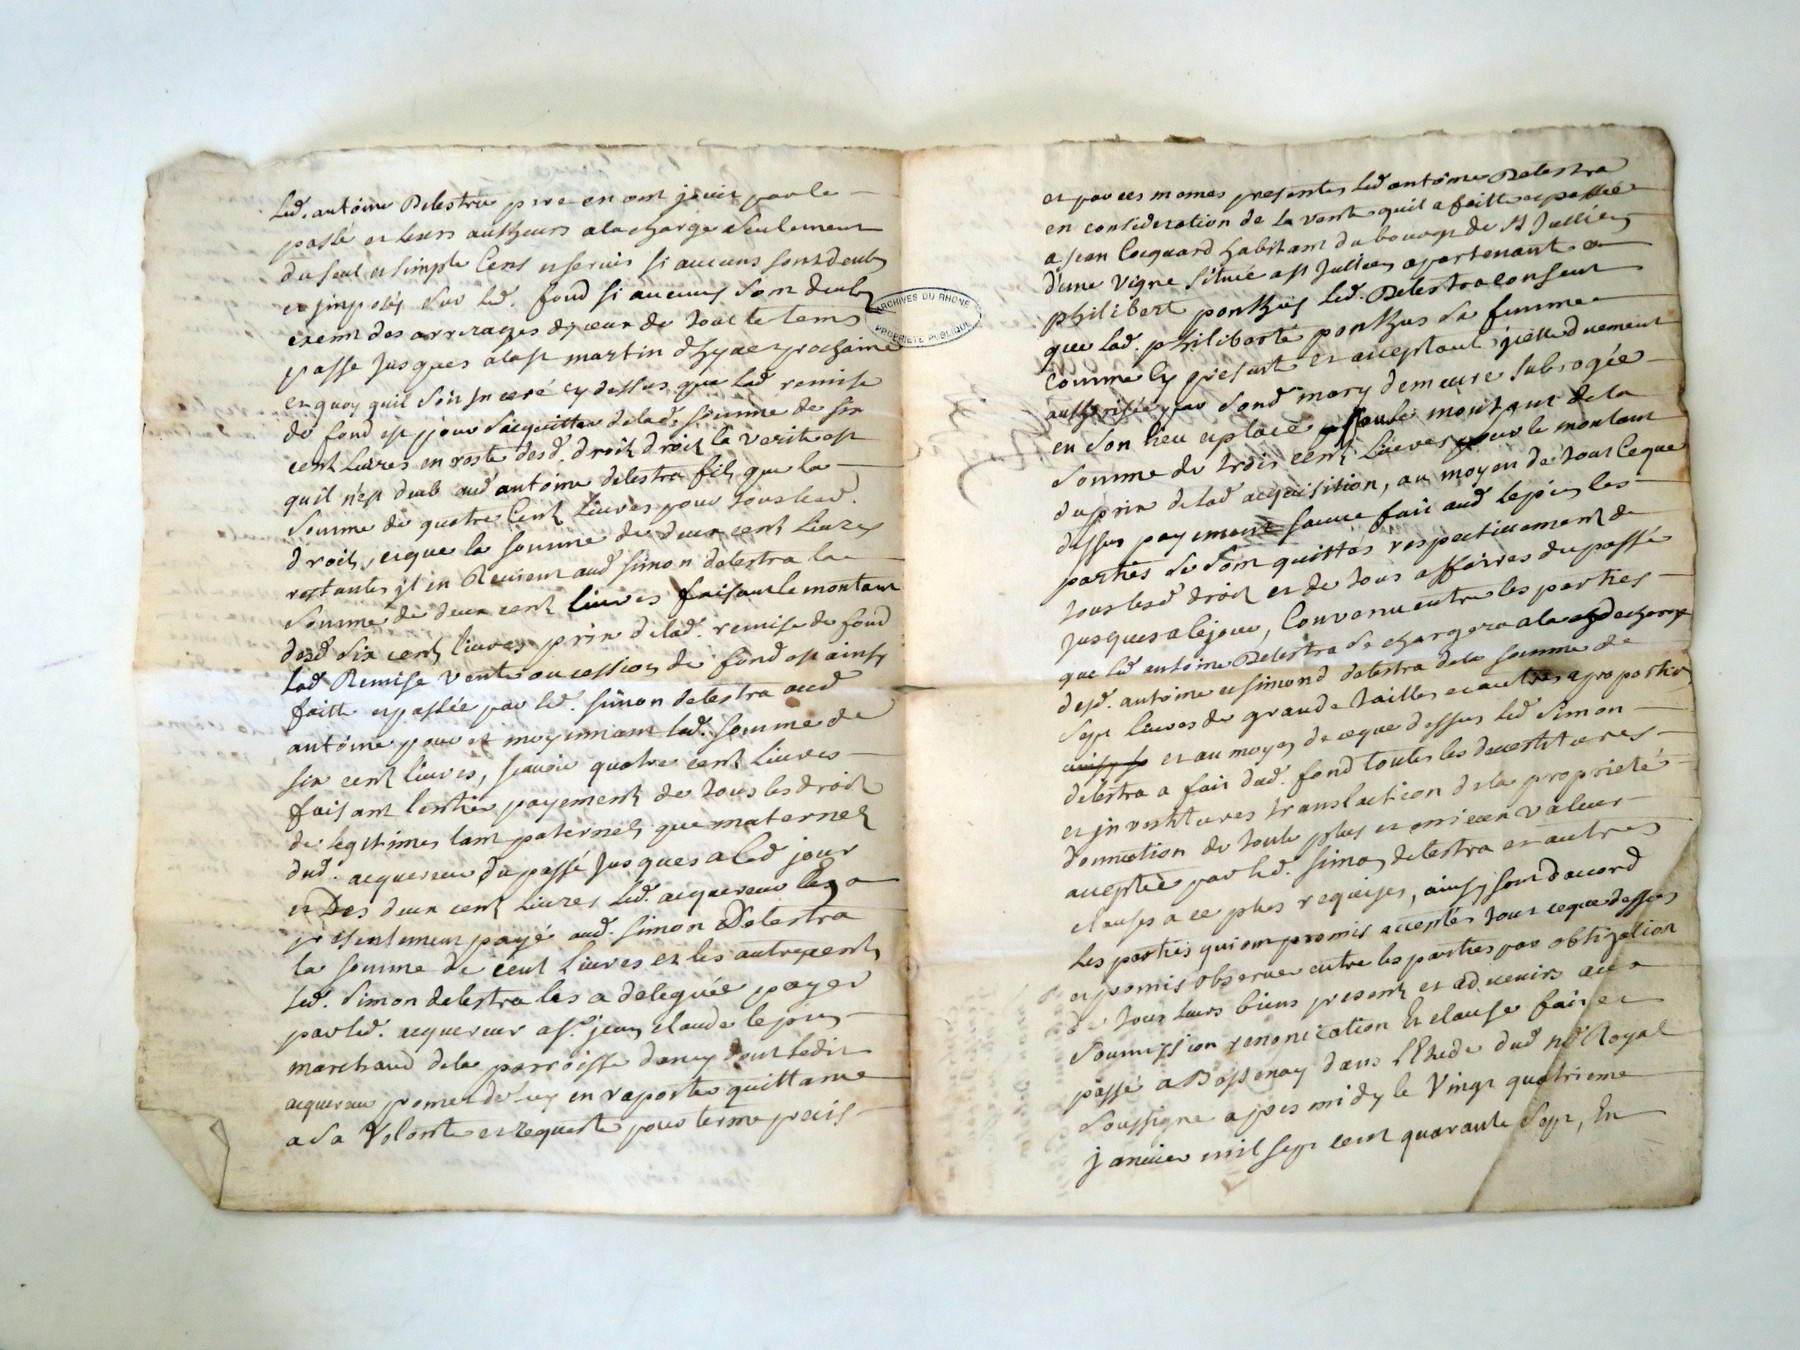 led. antoine Delestra pere en ont jouit par le
passé et leurs autheurs a la charge seulement
du seul et simple Cens et servis si aucuns sont deubs
et imposés sur led. fond si aucuns sont deubs
exemt des arrerages d'yceux de tout le tems
passe jusques a la st martin d'hyver prochaine
et quoy quil soit inceré cy dessus que lad remise
de fond est pour s'acquitter de lad. somme de six
cent livres en reste desd. droit droit la verité est
quil n'est deub aud antoine delestra fils que la
somme de quatre Cent livres pour tous lesd.
droits, et que la somme de deux cent livres
restantes il en Revient aud simon delestra la
somme de deux cent livres faisant le montant
desd six cent livres prix de lad. remise de fond
lad Remise vente ou cession de fond est ainsy
faitte et passée par led. simon delestra aud
antoine pour et moyennant lad. somme de
six cent livres, scavoir quatre cent livres
faisant l'entier payement de tous les droits
de legitimes tant paternels que maternels
dud. acquereur du passé jusques a ced jour
et Des deux cent livres led. acquereur a
presentement payé aud. simon Delestra
la somme de cent livres et les autres cent
led. simon delestra les a deleguée payer
par led. acquereur a sr. jean claude lepin
marchand de la parroisse dancy dont ledit
acquereur promet de luy en raporter quittance
a sa Volonté et requeste pour terme precis
ARCHIVES DU RHONE
PROPRIETE PUBLIQUE
et par ces memes presentes led antoine Delestra
en consideration de la vente quil a faitte et passée
a jean Cocquard habitant du bourg de st Jullien
d'une vigne située a st Jullien apartenant a
philibert ponthus led. Delestra consent
que lad. philiberte ponthus sa femme
comme cy present et acceptant icelle duement
authorisée par sond mary demeure subrogée
en son lieu et place pour le montant de la
somme de trois cent livres pour le montant
du prix de lad acquisition, au moyen de tout ce que
dessus payement sauve fait aud lepin les
parties se sont quittés respectivement de
tous lesd droits et de tous affaires du passé
jusques a ce jour, Convenu entre les parties
que led antoine Delestra se chargera a la decharge
desd. antoine et simond delestra de la somme de
sept livres de grande tailles et autres a proportion
et au moyen de ce que dessus led Simon
delestra a fait dud. fond toutes les devestitures
et investitures translaction de la proprieté
donnation de toute plus et moindre valeur
acceptée par led. simon delestra et autres
clauses a ce plus requises, ainsy sont d'accord
les parties qui ont promis accepter tout ce que dessus
et promis observer entre les parties par obligation
de tous leurs biens present et advenirs
soumission renonciation et clause fait et
passé a Bossenay dans l'Etude dud nre Royal
soussigne apres midy le Vingt quatrieme
janvier mil sept cent quarante sept, En